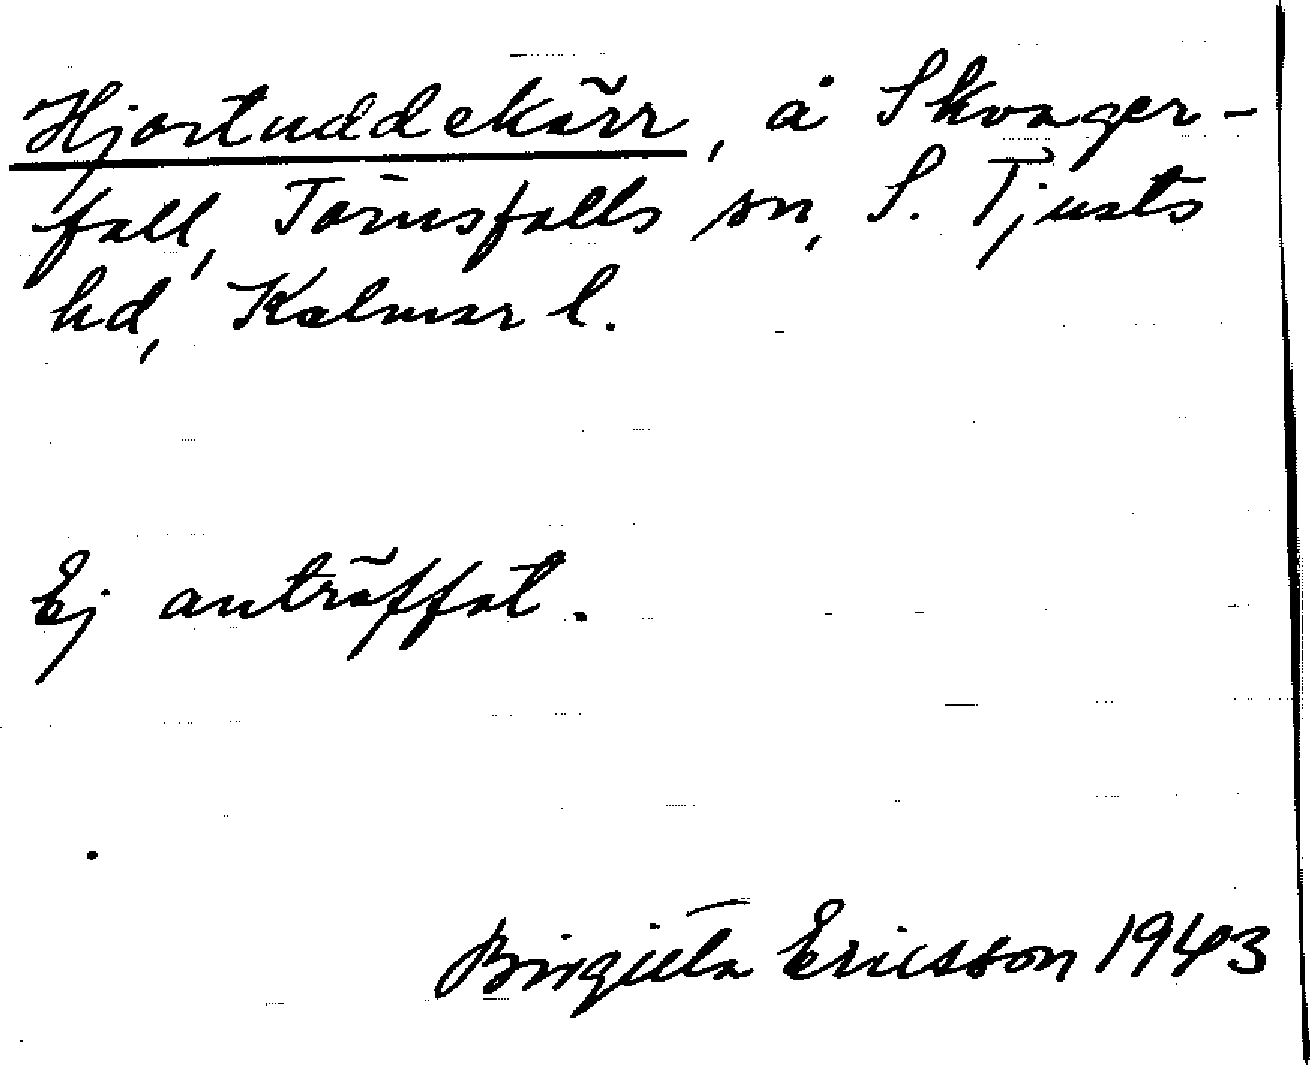 Hjortuddekärr, å Skvager-
fall, Törnsfalls sn, S. Tjusts
hd, Kalmar l.
Ej anträffat.
Birgitta Ericsson 1943